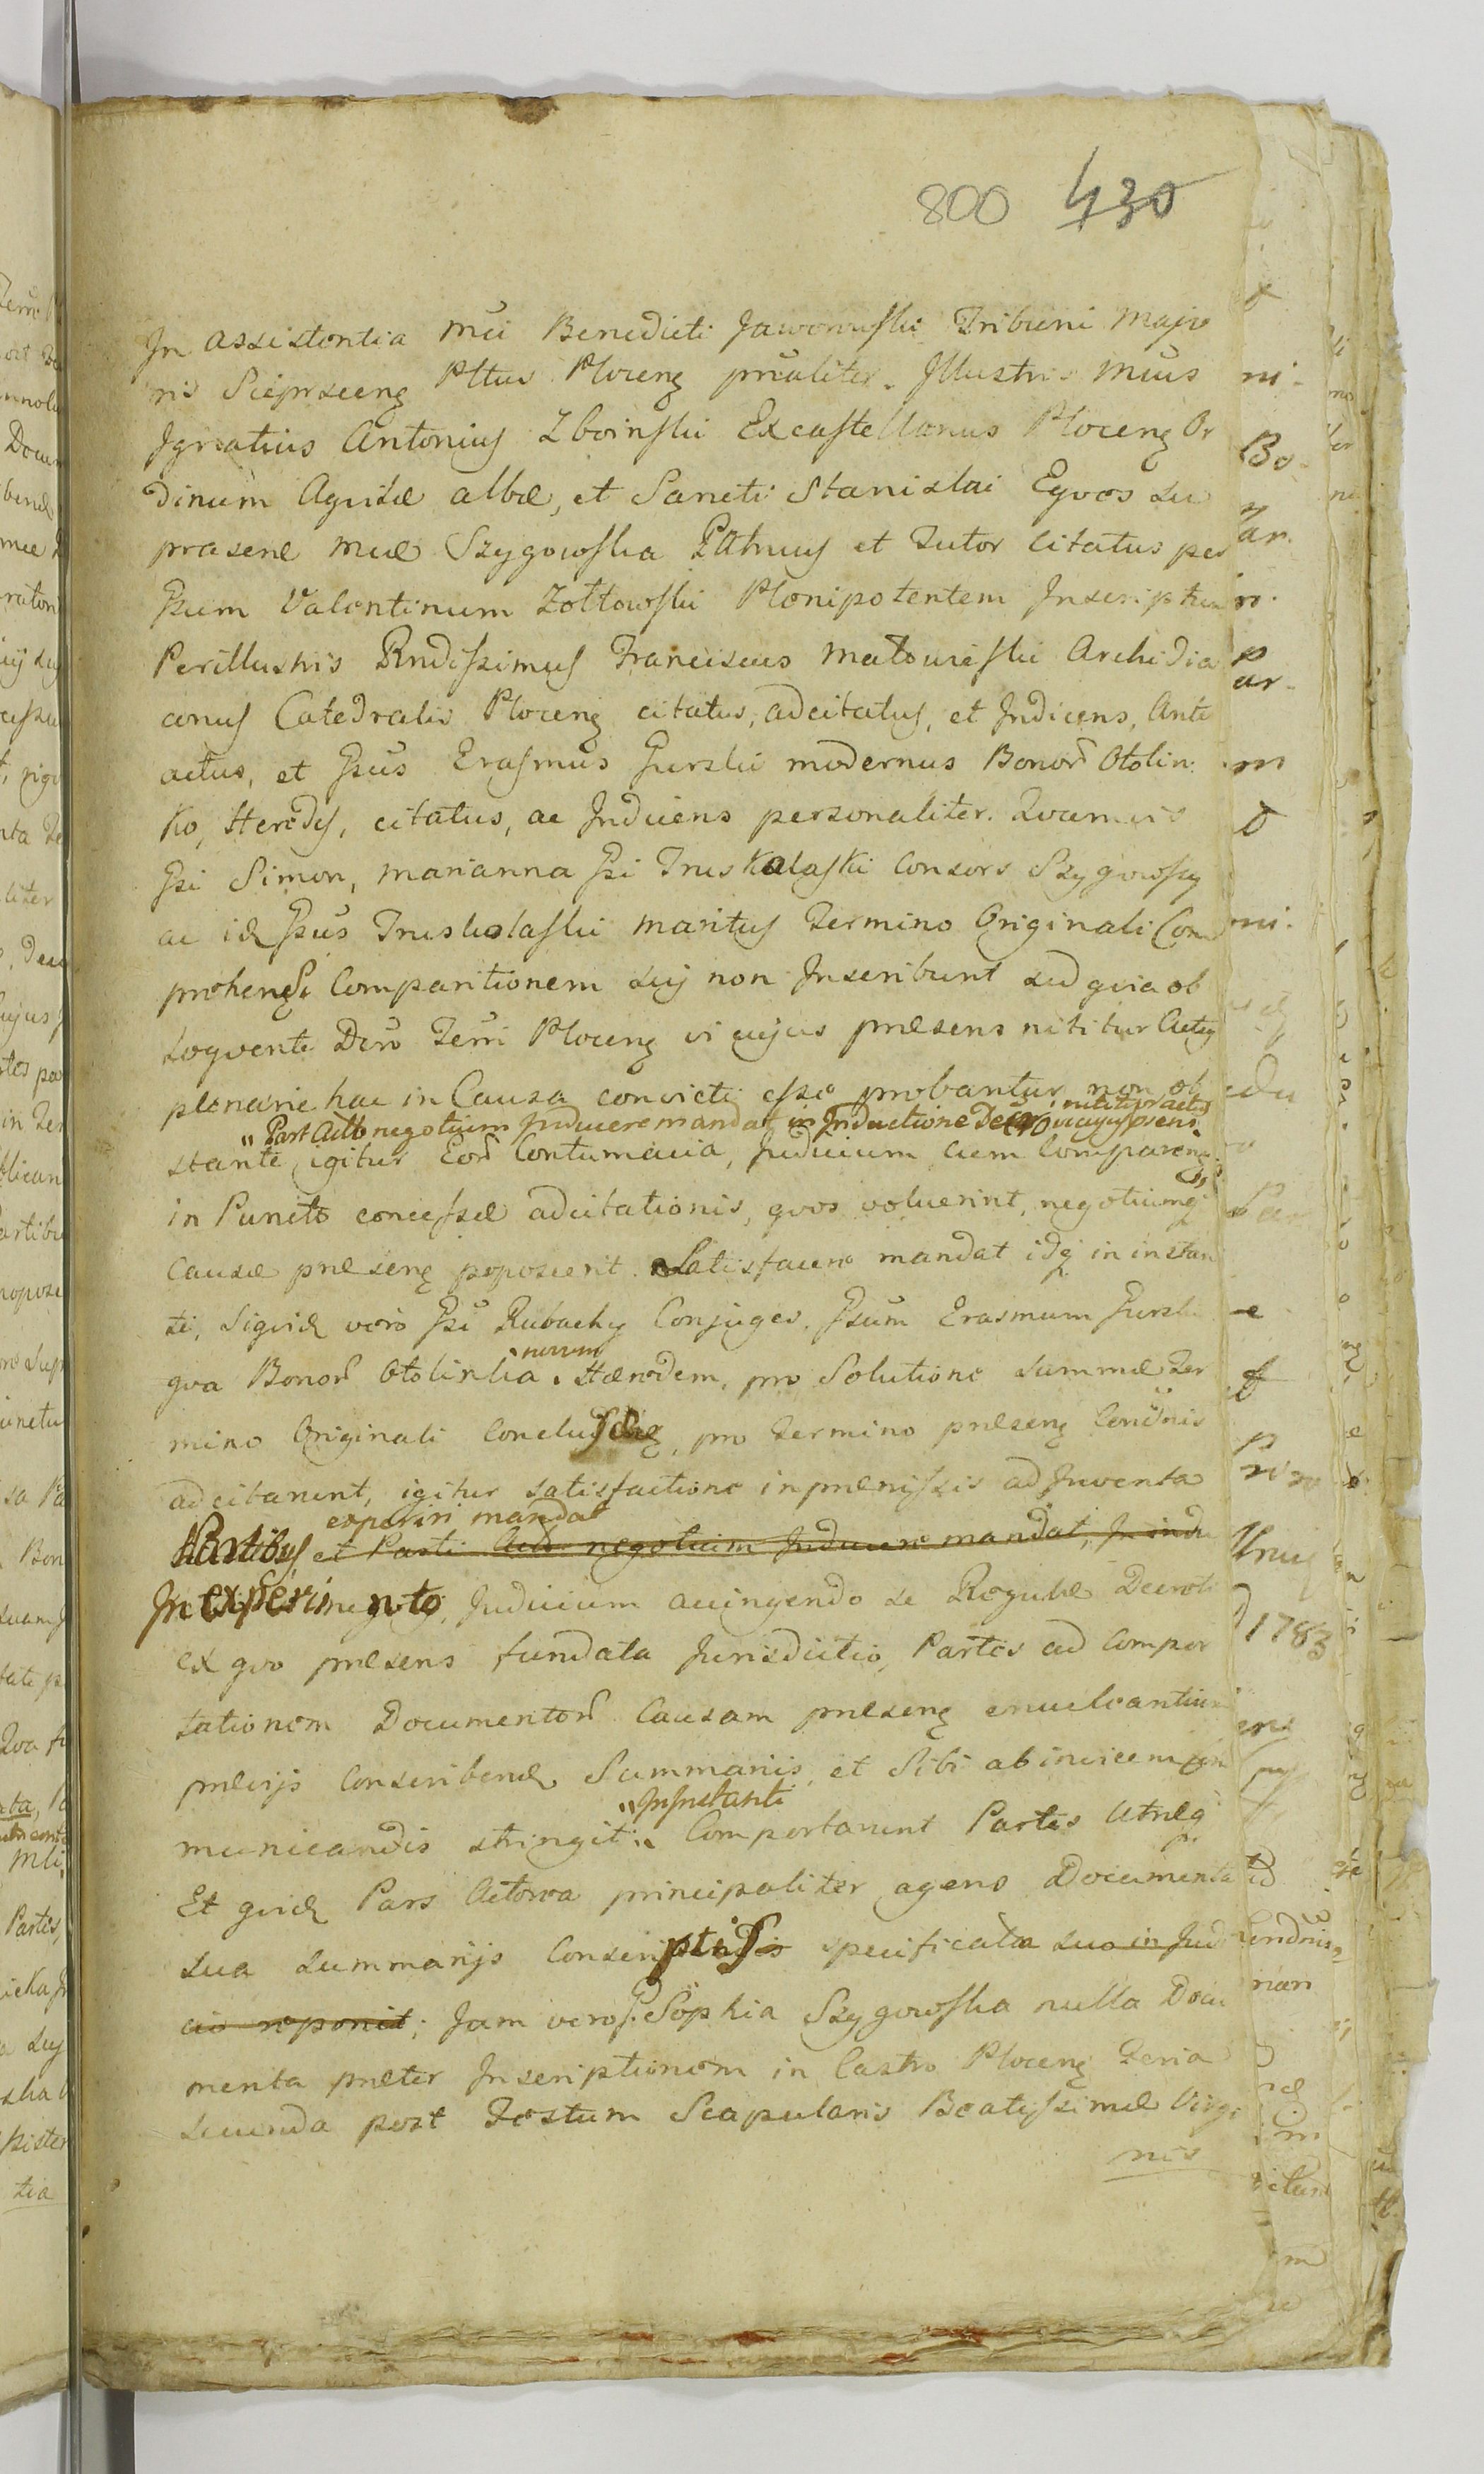 800 430
In assistentia Mci Benedicti Jaworowski Tribuni Majo
ris Sieprscens Pttus Plocens prnaliter. Illustris Mcus
Ignatius Antonius Zboinski Excastellanus Plocens Or
dinum Aquilæ albæ, et Sancti Stanislai Eqves su
prasene Mcæ Szygowska Pttruus et Tutor citatus per
Gsum Valentinum Zołtowski Plenipotentem Inscriptum
Perillustris Rndissimus Franciscus Matowieski Archidia
conus Catedralis Plocens citatus, adcitatus, et Indicens, Ante
actus, et Gsus Erasmus Gurski modernus Bonor Otolin
ko, Heredis, citatus, ac Inducens personaliter. Qvamvis
Gsi Simon, Marianna Gsi Truskolaski Consors Szygowscy
ac id Gsus Truskolaski Maritus Termino Originali Com
prehensi Comparitionem suj non Inscribunt sed qvia ob
loqvente Dcro Terri Plocens vi cujus præsens nititur Actus
plenarie hac in Causa convicti esse probantur, non ob
" Parti Acto negotium Inducere mandat in Inductione Decro vi cujus prens nititur actus
stante igitur Eor Contumacia, Judicium cum Comparens
in Puncto concessæ adcitationis, qvos voluerint, negotiumq
Causæ præsens poposcerit. Satisfacere mandat idq in instan
ti, Siqvid vero Gsi Rubachy Conjuges, Gsum Erasmum Gurski
qva Bonor Otolinka novum Hæredem, pro Solutione summæ Ter
mino Originali Conclusæ, pro termino præsens Condnis
adcitarunt, igitur satisfactione in præmissis adjuventa
experiri mandat
Partibus et Parti Acto negotium Inducere mandat, In indu
In experimento, Judicium accingendo se Regulæ Decreti
ex qvo præsens fundata Jurisdictio, Partes ad Compor
tationem Documentor Causam præsens enucleantium
prævijs Conscribend Summariis, et Sibi abinvicem com
municandis stringit. "Ininstanti Comportarunt Partes Utræq
Et qvid Pars Actorea principaliter agens Documenta
sua summarijs Conscriptis specificata suo in Judi
cio reponit; Jam vero G. Sophia Szygowska nulla Docu
menta præter Inscriptionem in Castro Plocens Feria
secunda post Festum Scapularis Beatissimæ Virgi
nis
1783